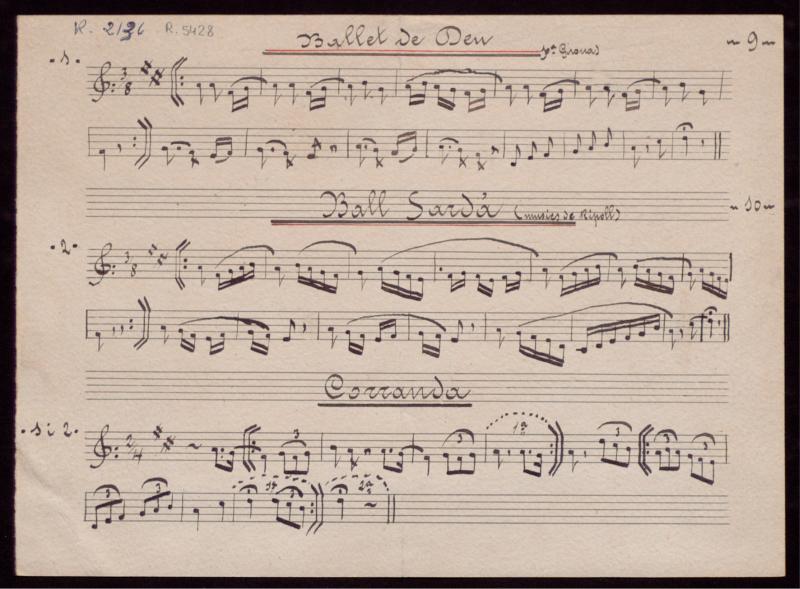 R. 2136 R. 5428
Ballet de Deu
~ 9 ~
.1. 3/8
Ball Sardá (musics de Ripoll)
~ 10 ~
.2. 3/8
Corranda
.1 i 2. 2/4
3 3 1ª 3 3 3
3 3 1ª 3 2ª